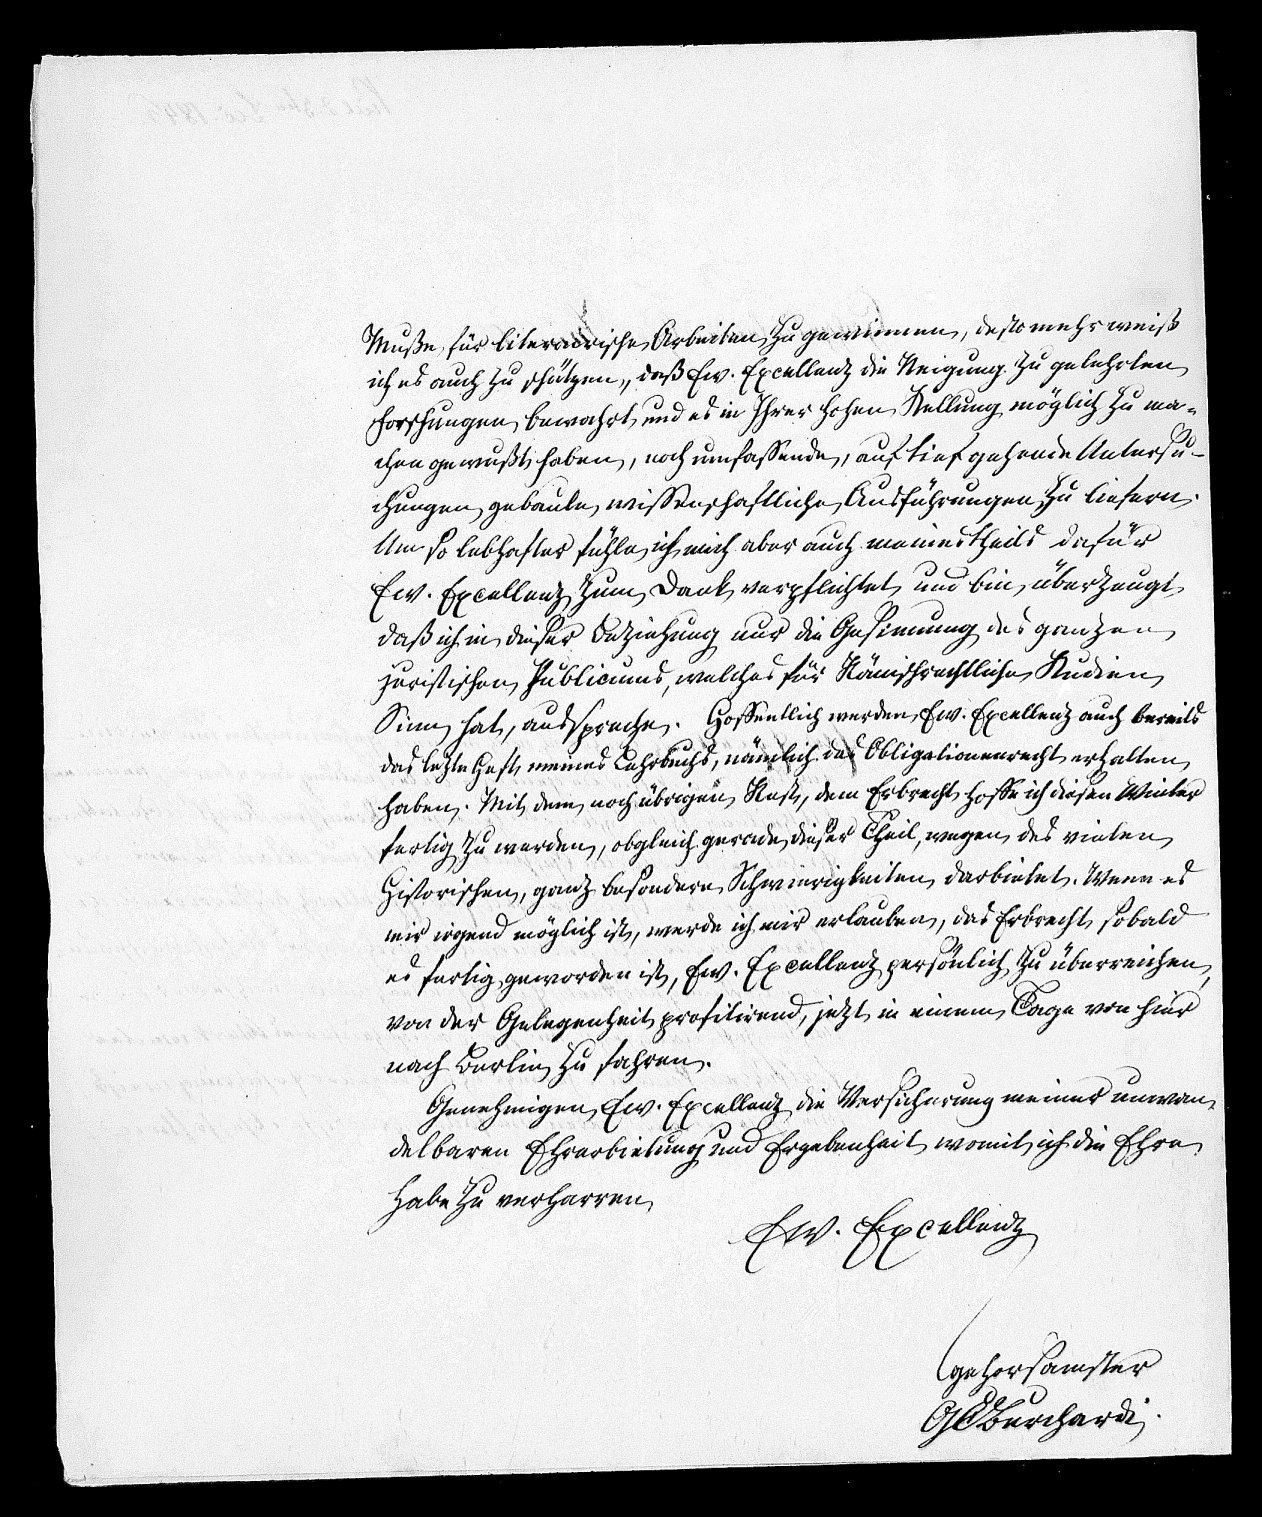 Muße für literarische Arbeiten zu gewinnen, desto mehr weiß
ich es auch zu schätzen, daß Ew. Excellenz die Neigung zu gelehrten
Forschungen bewahrt und es in Ihrer hohen Stellung möglich zu ma-
chen gewußt haben, noch umfassende, auf tief gehende Untersu-
chungen gebaute wissenschaftliche Ausführungen zu liefern.
Um so lebhafter fühle ich mich aber auch meinestheils dafür
Ew. Excellenz zum Dank verpflichtet und bin überzeugt
daß ich in dieser Beziehung nur die Gesinnung des ganzen
juristischen Publicums, welches für Römischrechtliche Studien
Sinn hat, ausspreche. Hoffentlich werden Ew. Excellenz auch bereits
das letzte Heft meines Lehrbuchs, nämlich das Obligationenrecht erhalten
haben. Mit dem noch übrigen Rest, dem Erbrecht hoffe ich diesen Winter
fertig zu werden, obgleich gerade dieser Theil, wegen des vielen
Historischen, ganz besondere Schwierigkeiten darbietet. Wenn es
mir irgend möglich ist, werde ich mir erlauben, das Erbrecht, sobald
es fertig geworden ist, Ew. Excellenz persönlich zu überreichen,
von der Gelegenheit profitirend, jetzt in einem Tage von hier
nach Berlin zu fahren.
Genehmigen Ew. Excellenz die Versicherung meiner unwan-
delbaren Ehrerbietung und Ergebenheit womit ich die Ehre
habe zu verharren
Ew. Excellenz
gehorsamster
GCBurchardi.